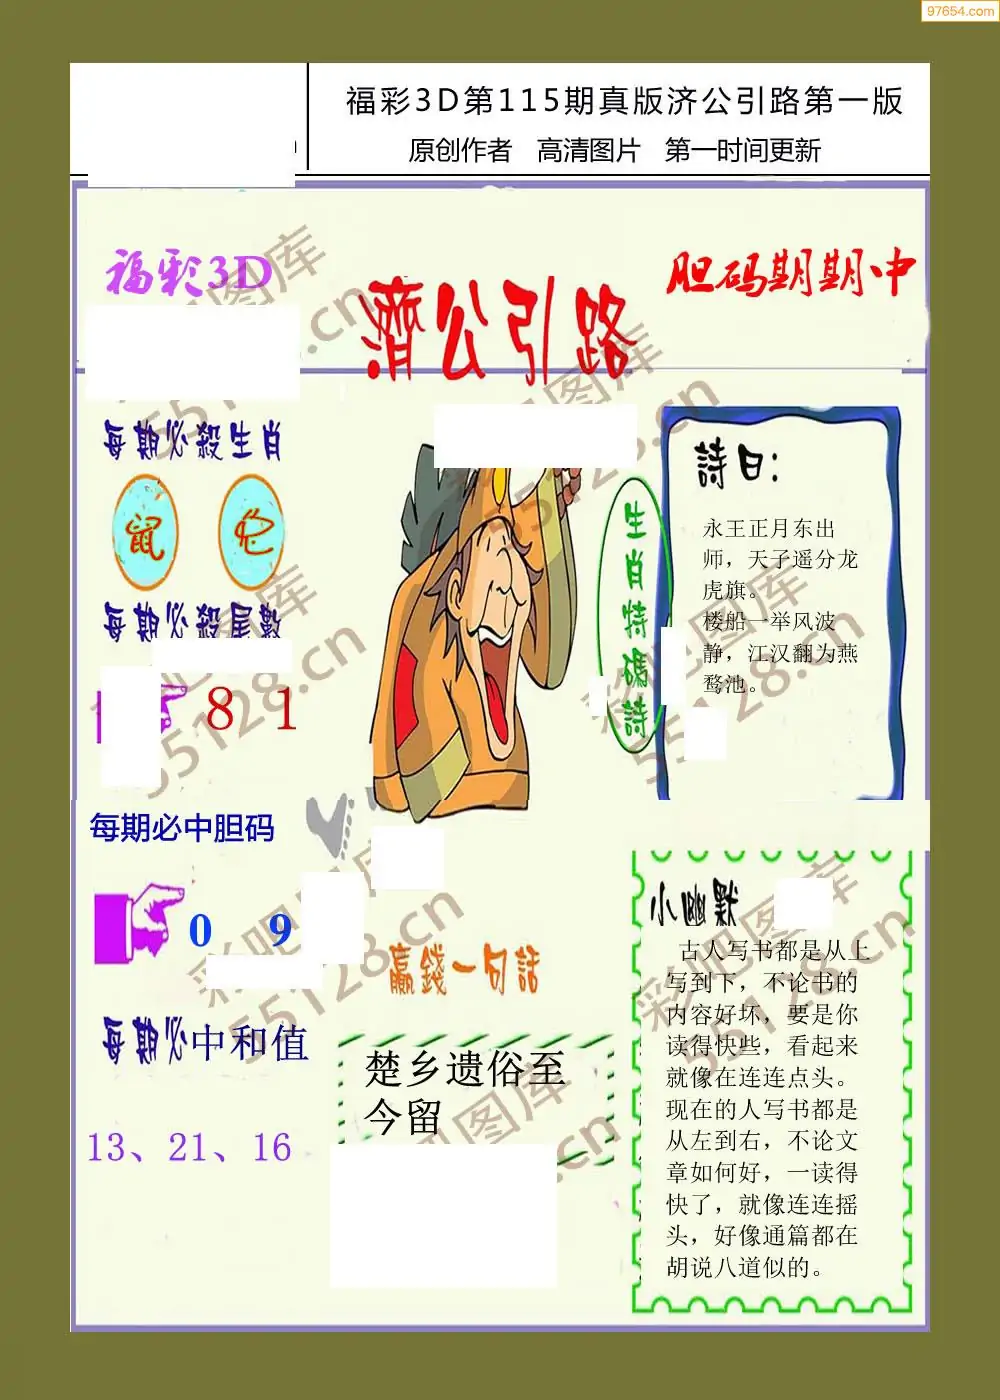 97654.com
福彩3D第115期真版济公引路第一版
原创作者 高清图片 第一时间更新
福彩3D
濟公引路
胆码期期中
每期必殺生肖
鼠 蛇
每期必殺尾數
8 1
每期必中胆码
0 9
每期必中和值
13、21、16
生肖特碼詩
詩曰:
永王正月东出
师，天子遥分龙
虎旗。
楼船一举风波
静，江汉翻为燕
鹜池。
赢錢一句話
楚乡遗俗至
今留
小幽默
古人写书都是从上
写到下，不论书的
内容好坏，要是你
读得快些，看起来
就像在连连点头。
现在的人写书都是
从左到右，不论文
章如何好，一读得
快了，就像连连摇
头，好像通篇都在
胡说八道似的。
彩吧图库
55128.cn